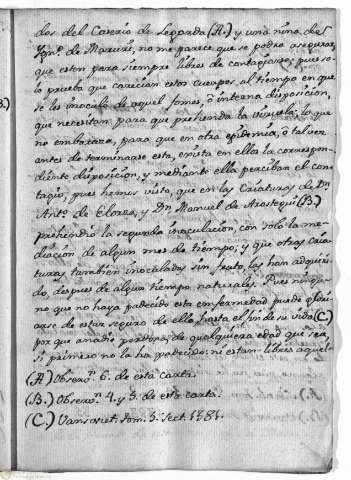 dos del Caserio de Legorda (A.) y una niña de
Jph. de Maruri, no me parece que se podra asegurar,
que esten para siempre libres de contagiarse; pues solo
lo prueba que carecian estos cuerpos al tiempo en que
se les inoculó de aquel fomes, ò interna disposicion,
que necesitan para que prehenda la viruela; lo que
no embaraza, para que en otra epidemia, ò tal vez
antes de terminarse esta, exista en ellos la correspon-
diente disposicion, y mediante ella perciban el con-
tagio, pues hemos visto, que en las Criaturas de Dn.
Antº. de Elorza, y Dn. Manuel de Arostegui (B.)
prehendió la segunda inoculacion, con solo la me-
diacion de algun mes de tiempo; y que otras Cria-
turas tambien inoculadas sin fruto, las han adquiri-
do, despues de algun tiempo naturales. Pues ningu-
no que no haya padecido esta enfermedad puede glori-
arse de estar seguro de ella hasta el fin de su vida (C.)
por que à nadie perdona, de qualquiera edad que sea,
si primero no la ha padecido: ni estan libres aquel-
(A.) Observon. 6. de esta carta.
(B.) Observon. 4. y 5. de esta carta.
(C.) Vansviet. tom. 5. Sect. 1381.